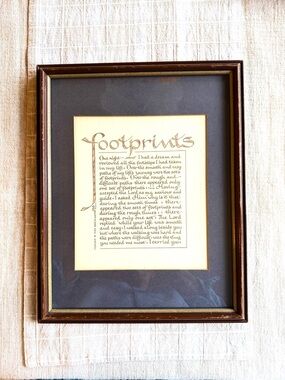 footprints
One night — I had a dream and
reviewed all the footsteps I had taken
in my life. Over the smooth and easy
paths of my life's journey were two sets
of footprints. Over the rough and
difficult paths there appeared only
one set of footprints. Having
accepted the Lord as my saviour and
guide I asked Him why is it that
during the smooth times there
appeared two sets of footprints and
during the rough times there
appeared only one set? The Lord
replied while your life was smooth
and easy I walked along beside you
but where the walking was hard and
the paths were difficult was the time
you needed me most. I carried you.